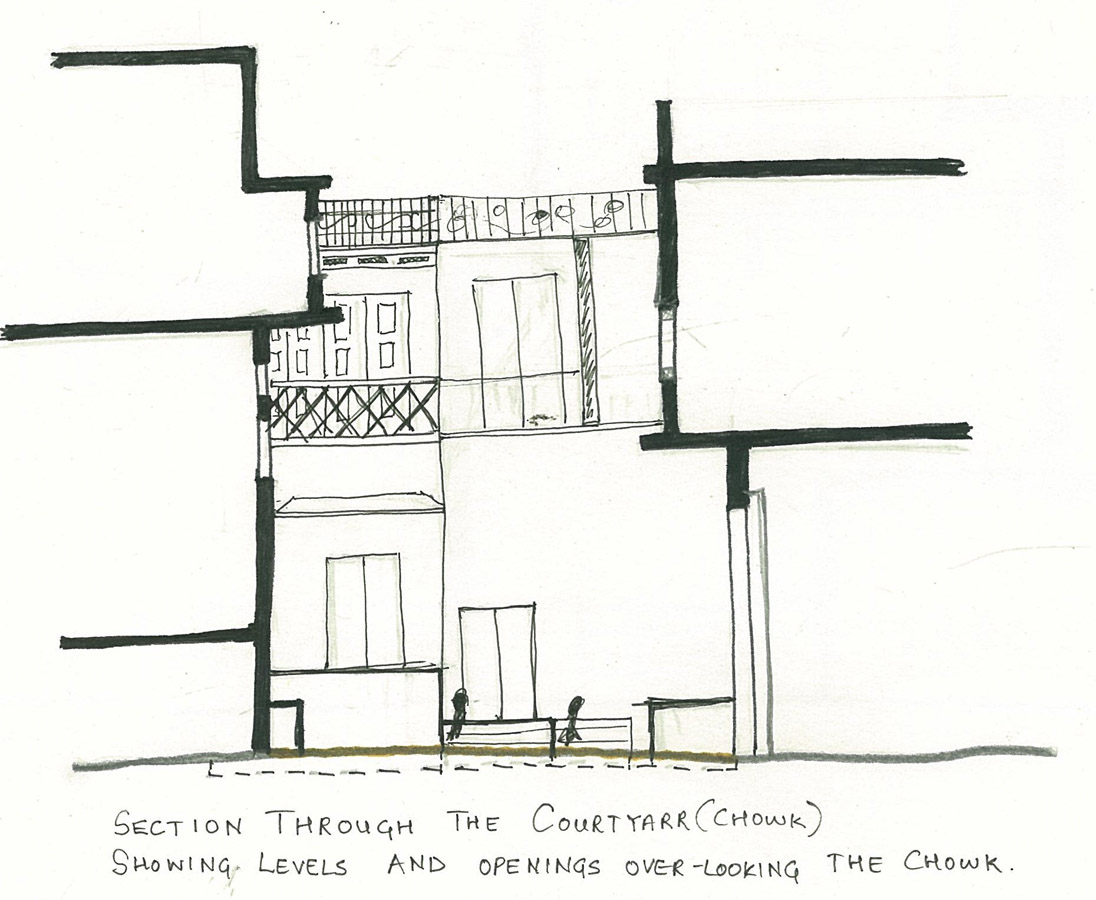 SECTION THROUGH THE COURTYARR (CHOWK)
SHOWING LEVELS AND OPENINGS OVER-LOOKING THE CHOWK.